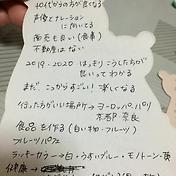 40代からの方が良くなる
声優とナレーション
に向いてる
商売も良い(食事)
不動産はない
2019-2020 はっきりこうしたちが
思いってわかる
まだ、こっからすごい!楽しくなる
行った方がいい場所→ヨーロッパ パリ
京都 奈良
食品を作る(白い物・フルーツ)
フルーツパフェ
ラッキーカラー→白・うすいブルー・モノトーン・黄
健康→